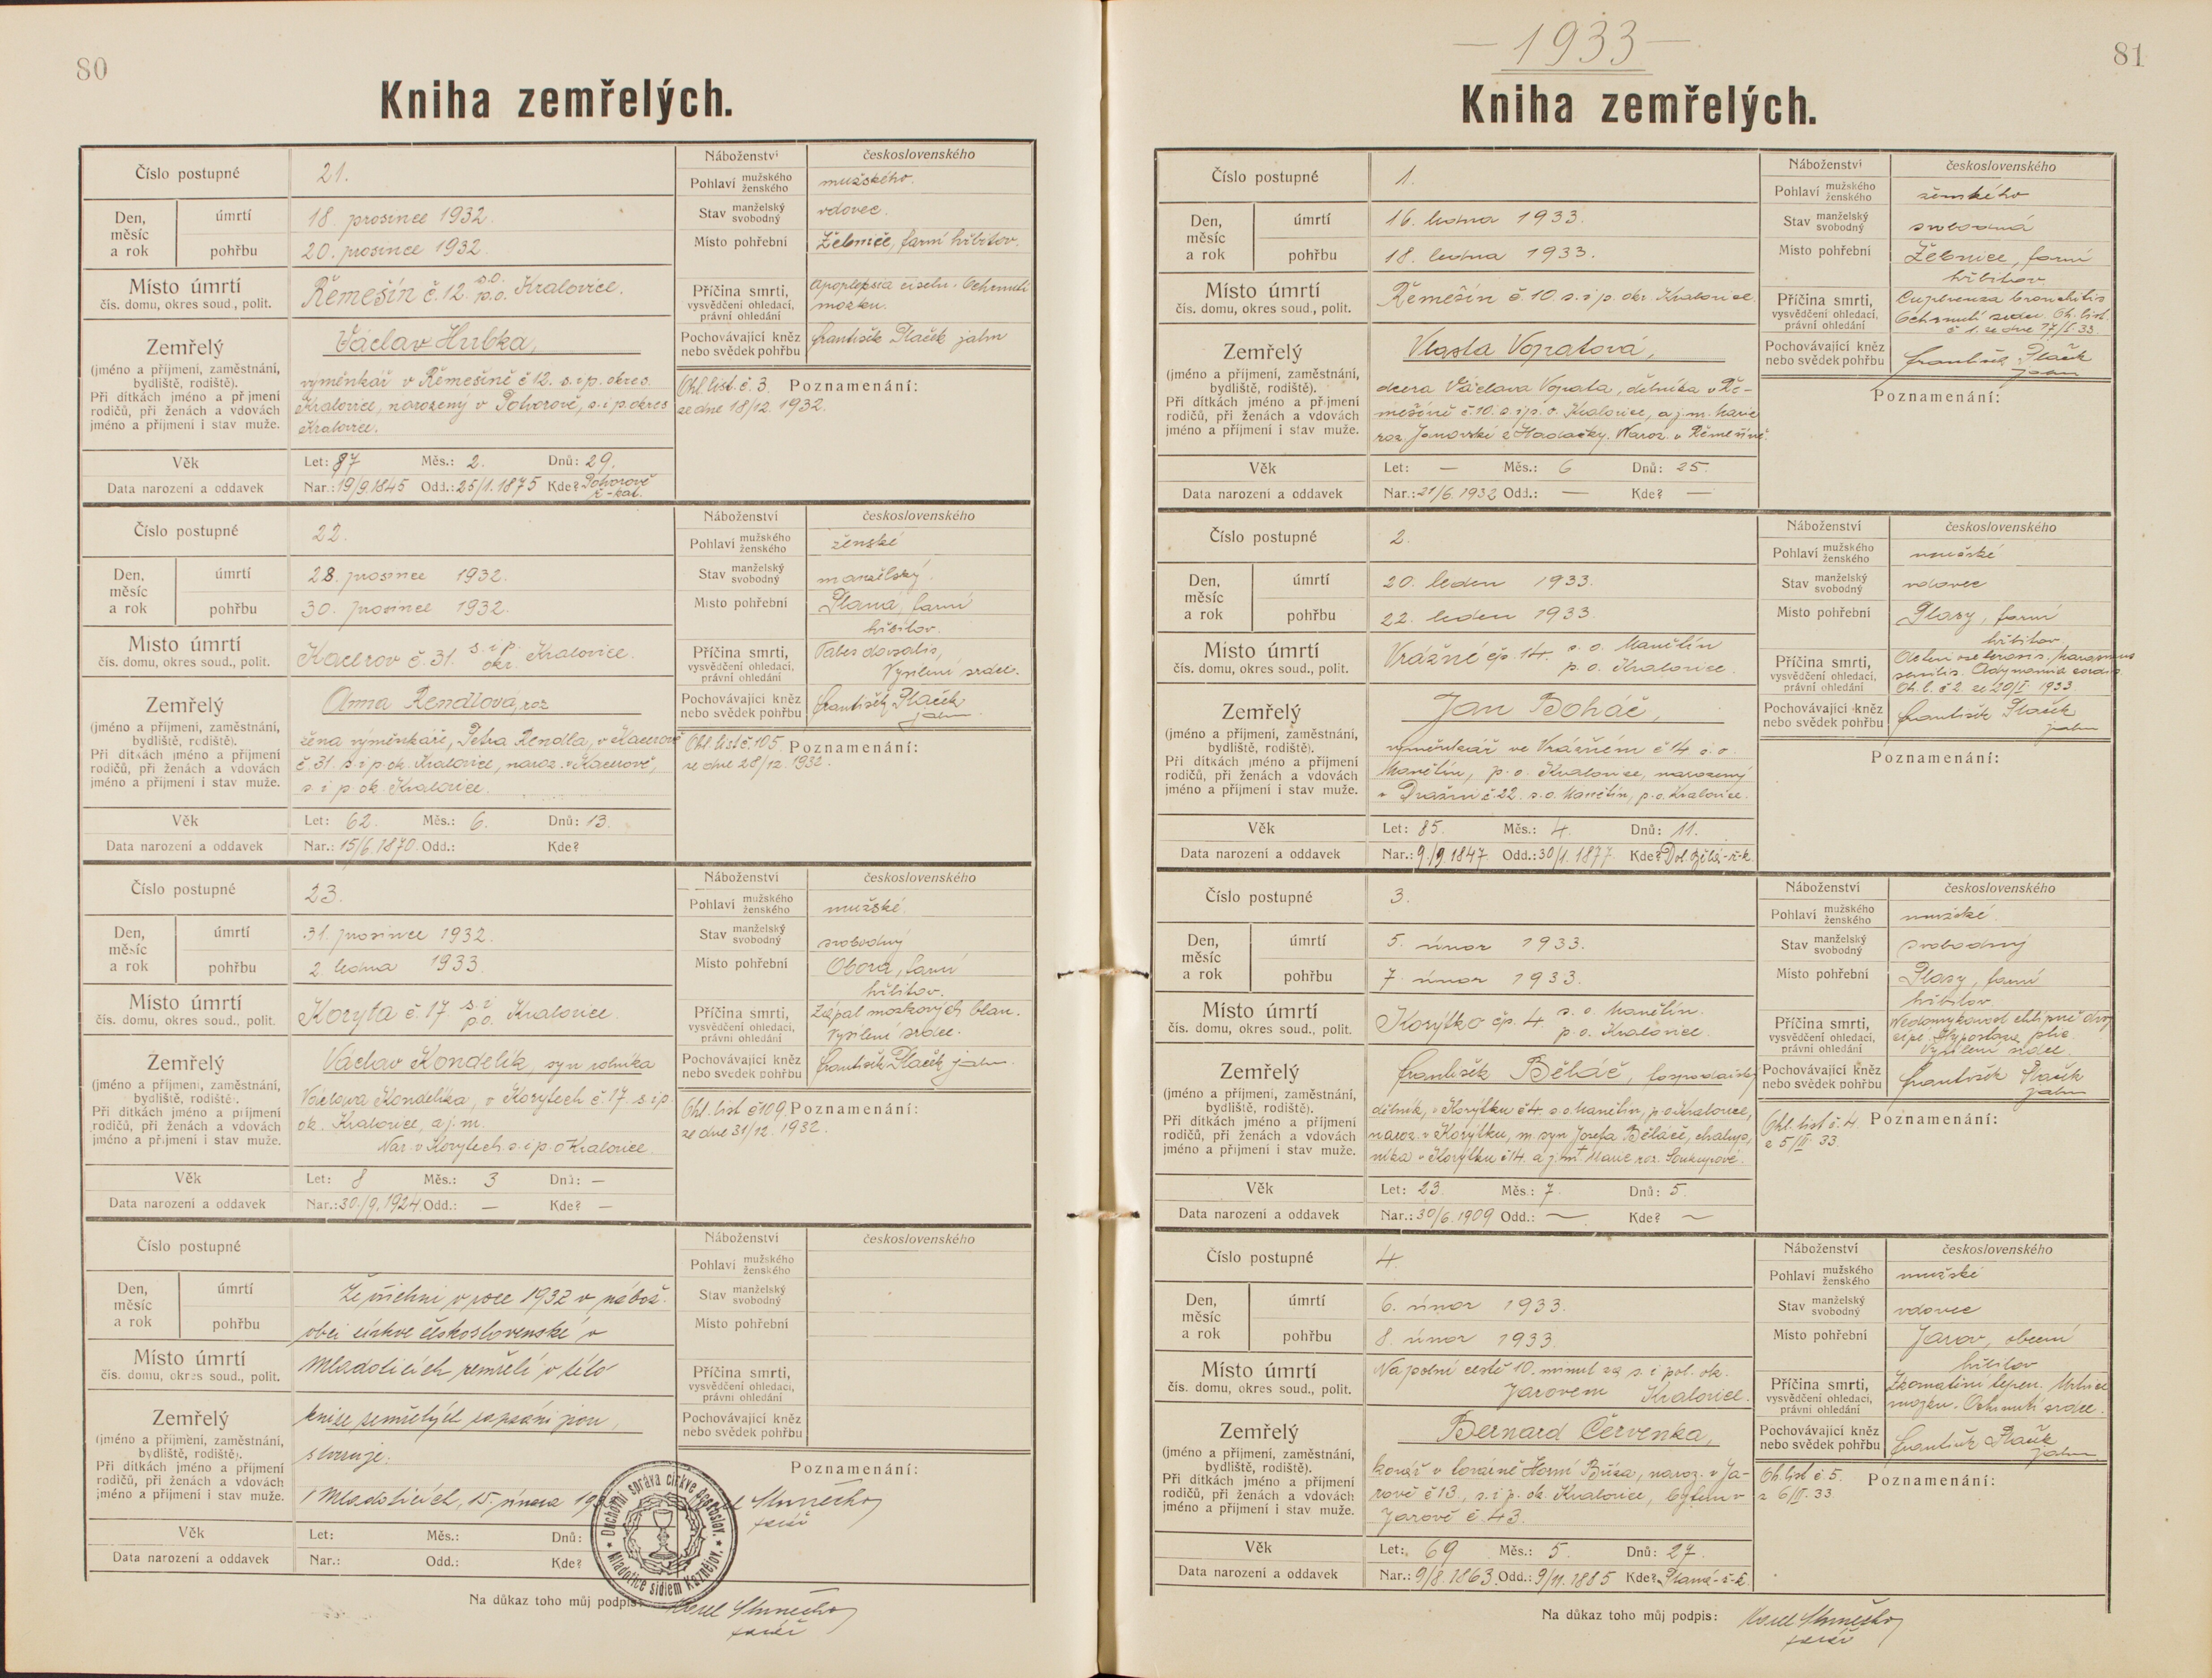 80
Kniha zemřelých.
Číslo postupné 21.
Náboženství československého
Pohlaví mužského ženského mužského.
Den, měsíc a rok úmrtí 18. prosince 1932.
Stav manželský svobodný vdovec.
pohřbu 20. prosince 1932.
Místo pohřební Žebnice, farní hřbitov.
Místo úmrtí čís. domu, okres soud., polit. Řemešín č. 12. s.o. p.o. Kralovice.
Příčina smrti, vysvědčení ohledací, právní ohledání Apoplexia Ochrnutí
mozku.
Zemřelý Václav Hubka,
Pochovávající kněz nebo svědek pohřbu František Plaček jahn
(jméno a příjmení, zaměstnání, bydliště, rodiště). Při dítkách jméno a příjmení rodičů, při ženách a vdovách jméno a příjmení i stav muže.
výměnkář v Řemešíně č 12. s. i p. okres
Kralovice, narozený v Potvorově, s. i p. okres
Kralovice.
Ohl. list. č. 3. Poznamenání:
ze dne 18/12. 1932.
Věk Let: 87 Měs.: 2. Dnů: 29.
Data narození a oddavek Nar.: 19/9. 1845 Odd.: 25/1. 1875 Kde? Potvorově
ř-kat.
Číslo postupné 22.
Náboženství československého
Pohlaví mužského ženského ženské
Den, měsíc a rok úmrtí 28. prosince 1932.
Stav manželský svobodný manželský.
pohřbu 30. prosince 1932.
Místo pohřební Planá, farní
hřbitov.
Místo úmrtí čís. domu, okres soud., polit. Kacerov č. 31. s. i p. okr. Kralovice.
Příčina smrti, vysvědčení ohledací, právní ohledání Tabes dorsalis,
Vysílení srdce.
Zemřelý Anna Rendlová, roz
Pochovávající kněz nebo svědek pohřbu František Plaček
jahn
(jméno a příjmení, zaměstnání, bydliště, rodiště). Při dítkách jméno a příjmení rodičů, při ženách a vdovách jméno a příjmení i stav muže.
žena výměnkáře, Petra Rendla, v Kacerově
č. 31. s. i p. ok. Kralovice, naroz. v Kacerově,
s. i p. ok. Kralovice.
Ohl. list č. 105. Poznamenání:
ze dne 28/12. 1932.
Věk Let: 62. Měs.: 6. Dnů: 13.
Data narození a oddavek Nar.: 15/6. 1870. Odd.: Kde?
Číslo postupné 23.
Náboženství československého
Pohlaví mužského ženského mužské.
Den, měsíc a rok úmrtí 31. prosince 1932.
Stav manželský svobodný svobodný
pohřbu 2. ledna 1933.
Místo pohřební Obora, farní
hřbitov.
Místo úmrtí čís. domu, okres soud., polit. Koryta č. 17. s. i p.o. Kralovice.
Příčina smrti, vysvědčení ohledací, právní ohledání Zápal mozkových blan.
Vysílení srdce.
Zemřelý Václav Kondelík, syn rolníka
Pochovávající kněz nebo svědek pohřbu František Plaček jahn.
(jméno a příjmení, zaměstnání, bydliště, rodiště). Při dítkách jméno a příjmení rodičů, při ženách a vdovách jméno a příjmení i stav muže.
Václava Kondelíka, v Korytech č. 17. s. i p.
ok. Kralovice, a j. m.
Nar. v Korytech. s. i p. o Kralovice.
Ohl. list č 109. Poznamenání:
ze dne 31/12. 1932.
Věk Let: 8 Měs.: 3 Dnů: —
Data narození a oddavek Nar.: 30./9. 1924 Odd.: — Kde? —
Číslo postupné
Náboženství československého
Pohlaví mužského ženského
Den, měsíc a rok úmrtí Že všichni v roce 1932 v nábož.
Stav manželský svobodný
pohřbu obci církve československé v
Místo pohřební
Místo úmrtí čís. domu, okres soud., polit. Mladoticích zemřelí v této
Příčina smrti, vysvědčení ohledací, právní ohledání
Zemřelý knize zemřelých zapsáni jsou,
Pochovávající kněz nebo svědek pohřbu
stvrzuje:
(jméno a příjmení, zaměstnání, bydliště, rodiště). Při dítkách jméno a příjmení rodičů, při ženách a vdovách jméno a příjmení i stav muže.
Poznamenání:
V Mladoticích, 15. února
farář
Duchovní správa církve českoslov. Mladotice sídlem Kaznějov.
Věk Let: Měs.: Dnů:
Data narození a oddavek Nar.: Odd.: Kde?
Na důkaz toho můj podpis: Karel
farář
— 1933 —
81
Kniha zemřelých.
Číslo postupné 1.
Náboženství československého
Pohlaví mužského ženského ženského
Den, měsíc a rok úmrtí 16. ledna 1933.
Stav manželský svobodný svobodná
pohřbu 18. ledna 1933.
Místo pohřební Žebnice, farní
hřbitov
Místo úmrtí čís. domu, okres soud., polit. Řemešín č. 10 s. i p. okr. Kralovice.
Příčina smrti, vysvědčení ohledací, právní ohledání bronchitis
Ochrnutí srdce. Oh. list
č 1. ze dne 17/I. 33.
Zemřelý Vlasta Vopatová,
Pochovávající kněz nebo svědek pohřbu František Plaček
jahn
(jméno a příjmení, zaměstnání, bydliště, rodiště). Při dítkách jméno a příjmení rodičů, při ženách a vdovách jméno a příjmení i stav muže.
dcera Václava Vopata, dělníka v Ře-
mešíně č. 10. s. i p. o. Kralovice, a j. m. Marie
roz. Janovské z Hadačky. Naroz. v Řemešíně.
Poznamenání:
Věk Let: — Měs.: 6 Dnů: 25.
Data narození a oddavek Nar.: 21/6. 1932 Odd.: — Kde? —
Číslo postupné 2.
Náboženství československého
Pohlaví mužského ženského mužské
Den, měsíc a rok úmrtí 20. leden 1933.
Stav manželský svobodný vdovec
pohřbu 22. leden 1933
Místo pohřební Plasy, farní
hřbitov.
Místo úmrtí čís. domu, okres soud., polit. Vrážné čp. 14. s. o. Manětín
p. o. Kralovice.
Příčina smrti, vysvědčení ohledací, právní ohledání marasmus
senilis. Adynamia cordis
Oh. l. č 2. ze 20/I 1933.
Zemřelý Jan Boháč,
Pochovávající kněz nebo svědek pohřbu František Plaček
jahn
(jméno a příjmení, zaměstnání, bydliště, rodiště). Při dítkách jméno a příjmení rodičů, při ženách a vdovách jméno a příjmení i stav muže.
výměnkář ve Vrážném č 14. s. o.
Manětín, p. o. Kralovice, narozený
v Dražni č. 22. s. o. Manětín, p. o. Kralovice.
Poznamenání:
Věk Let: 85. Měs.: 4. Dnů: 11.
Data narození a oddavek Nar.: 9./9. 1847. Odd.: 30/1. 1877. Kde? Dol. Bělá-ř-k.
Číslo postupné 3.
Náboženství československého
Pohlaví mužského ženského mužské.
Den, měsíc a rok úmrtí 5. únor 1933.
Stav manželský svobodný svobodný
pohřbu 7. únor 1933.
Místo pohřební Plasy, farní
hřbitov
Místo úmrtí čís. domu, okres soud., polit. Korýtko čp. 4. s. o. Manětín.
p. o. Kralovice.
Příčina smrti, vysvědčení ohledací, právní ohledání Nedomykavost chlopně
plic.
Vysílení srdce.
Zemřelý František Běláč, hospodářský
Pochovávající kněz nebo svědek pohřbu František Plaček
jahn
(jméno a příjmení, zaměstnání, bydliště, rodiště). Při dítkách jméno a příjmení rodičů, při ženách a vdovách jméno a příjmení i stav muže.
dělník, v Korýtku č 4. s. o. Manětín, p. o. Kralovice,
naroz. v Korýtku, m. syn Josefa Běláče, chalup,
níka v Korýtku č 14. a j. m. Marie roz. Soukupové.
Ohl. list č. 4 Poznamenání:
z 5/II. 33.
Věk Let: 23. Měs.: 7. Dnů: 5.
Data narození a oddavek Nar.: 30/6. 1909 Odd.: — Kde? —
Číslo postupné 4.
Náboženství československého
Pohlaví mužského ženského mužské
Den, měsíc a rok úmrtí 6. únor 1933.
Stav manželský svobodný vdovec
pohřbu 8. únor 1933.
Místo pohřební Jarov, obecní
hřbitov
Místo úmrtí čís. domu, okres soud., polit. Na polní cestě 10. minut za s. i pol. ok.
Jarovem Kralovice.
Příčina smrti, vysvědčení ohledací, právní ohledání tepen. Mrtvice
mozku. Ochrnutí srdce.
Zemřelý Bernard Červenka,
Pochovávající kněz nebo svědek pohřbu František Plaček
jahn
(jméno a příjmení, zaměstnání, bydliště, rodiště). Při dítkách jméno a příjmení rodičů, při ženách a vdovách jméno a příjmení i stav muže.
kovář v továrně Horní Bříza, naroz. v Ja-
rově č 13., s. i p. ok. Kralovice, bytem v
Jarově č. 43.
Oh. list č 5. Poznamenání:
z 6/II. 33
Věk Let: 69 Měs.: 5. Dnů: 27.
Data narození a oddavek Nar.: 9/8. 1863. Odd.: 9/11. 1885 Kde? Planá-ř-k.
Na důkaz toho můj podpis: Karel
farář